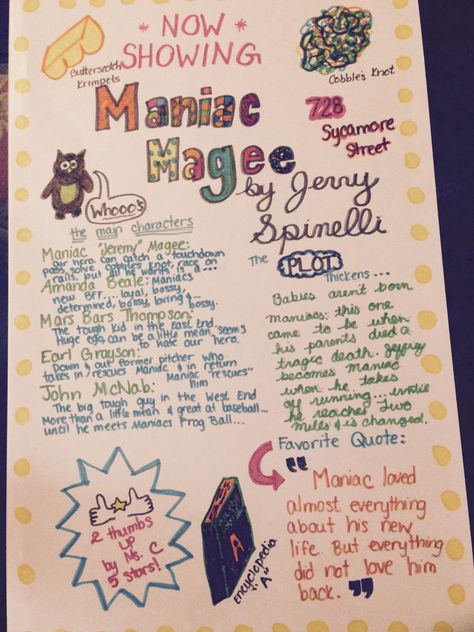 NOW
SHOWING
Butterscotch
Krimpets
Cobble's Knot
Maniac
Magee
728
Sycamore
Street
by Jerry
Spinelli
Whooo's
the main characters
Maniac "Jeremy" Magee:
our hero can catch a touchdown
pass, solve cobbles knot, race on
rails, but all he wants is a...
Amanda Beale: Maniacs
new BFF.... loyal, bossy,
determined, bossy, loving &
bossy.
Mars Bars Thompson:
The tough kid in the East End
Huge ego, can be a little mean & seems
to hate our hero.
Earl Grayson:
Down & out former pitcher who
takes in/rescues Maniac & in return
Maniac "rescues"
him
John McNab:
The big tough guy in the West End
More than a little mean & great at baseball...
until he meets Maniacs Frog Ball...
The PLOT
thickens...
Babies aren't born
Maniacs: this one
came to be when
his parents died a
tragic death. Jeffrey
becomes maniac
when he takes
off running... until
he reaches Two
Mills & is changed.
Favorite Quote:
"Maniac loved
almost everything
about his new
life. But everything
did not love him
back."
2 thumbs
up
by Ms. C
5 stars!
A
Encyclopedia
"A"